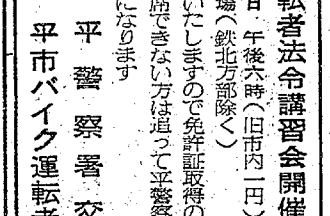 転者法令講習会開催
日 午後六時(旧市内一円)
場(鉄北方部除く)
いたしますので免許証取得の
席できない方は追って平警察
になります
平警察署交
平市バイク運転者